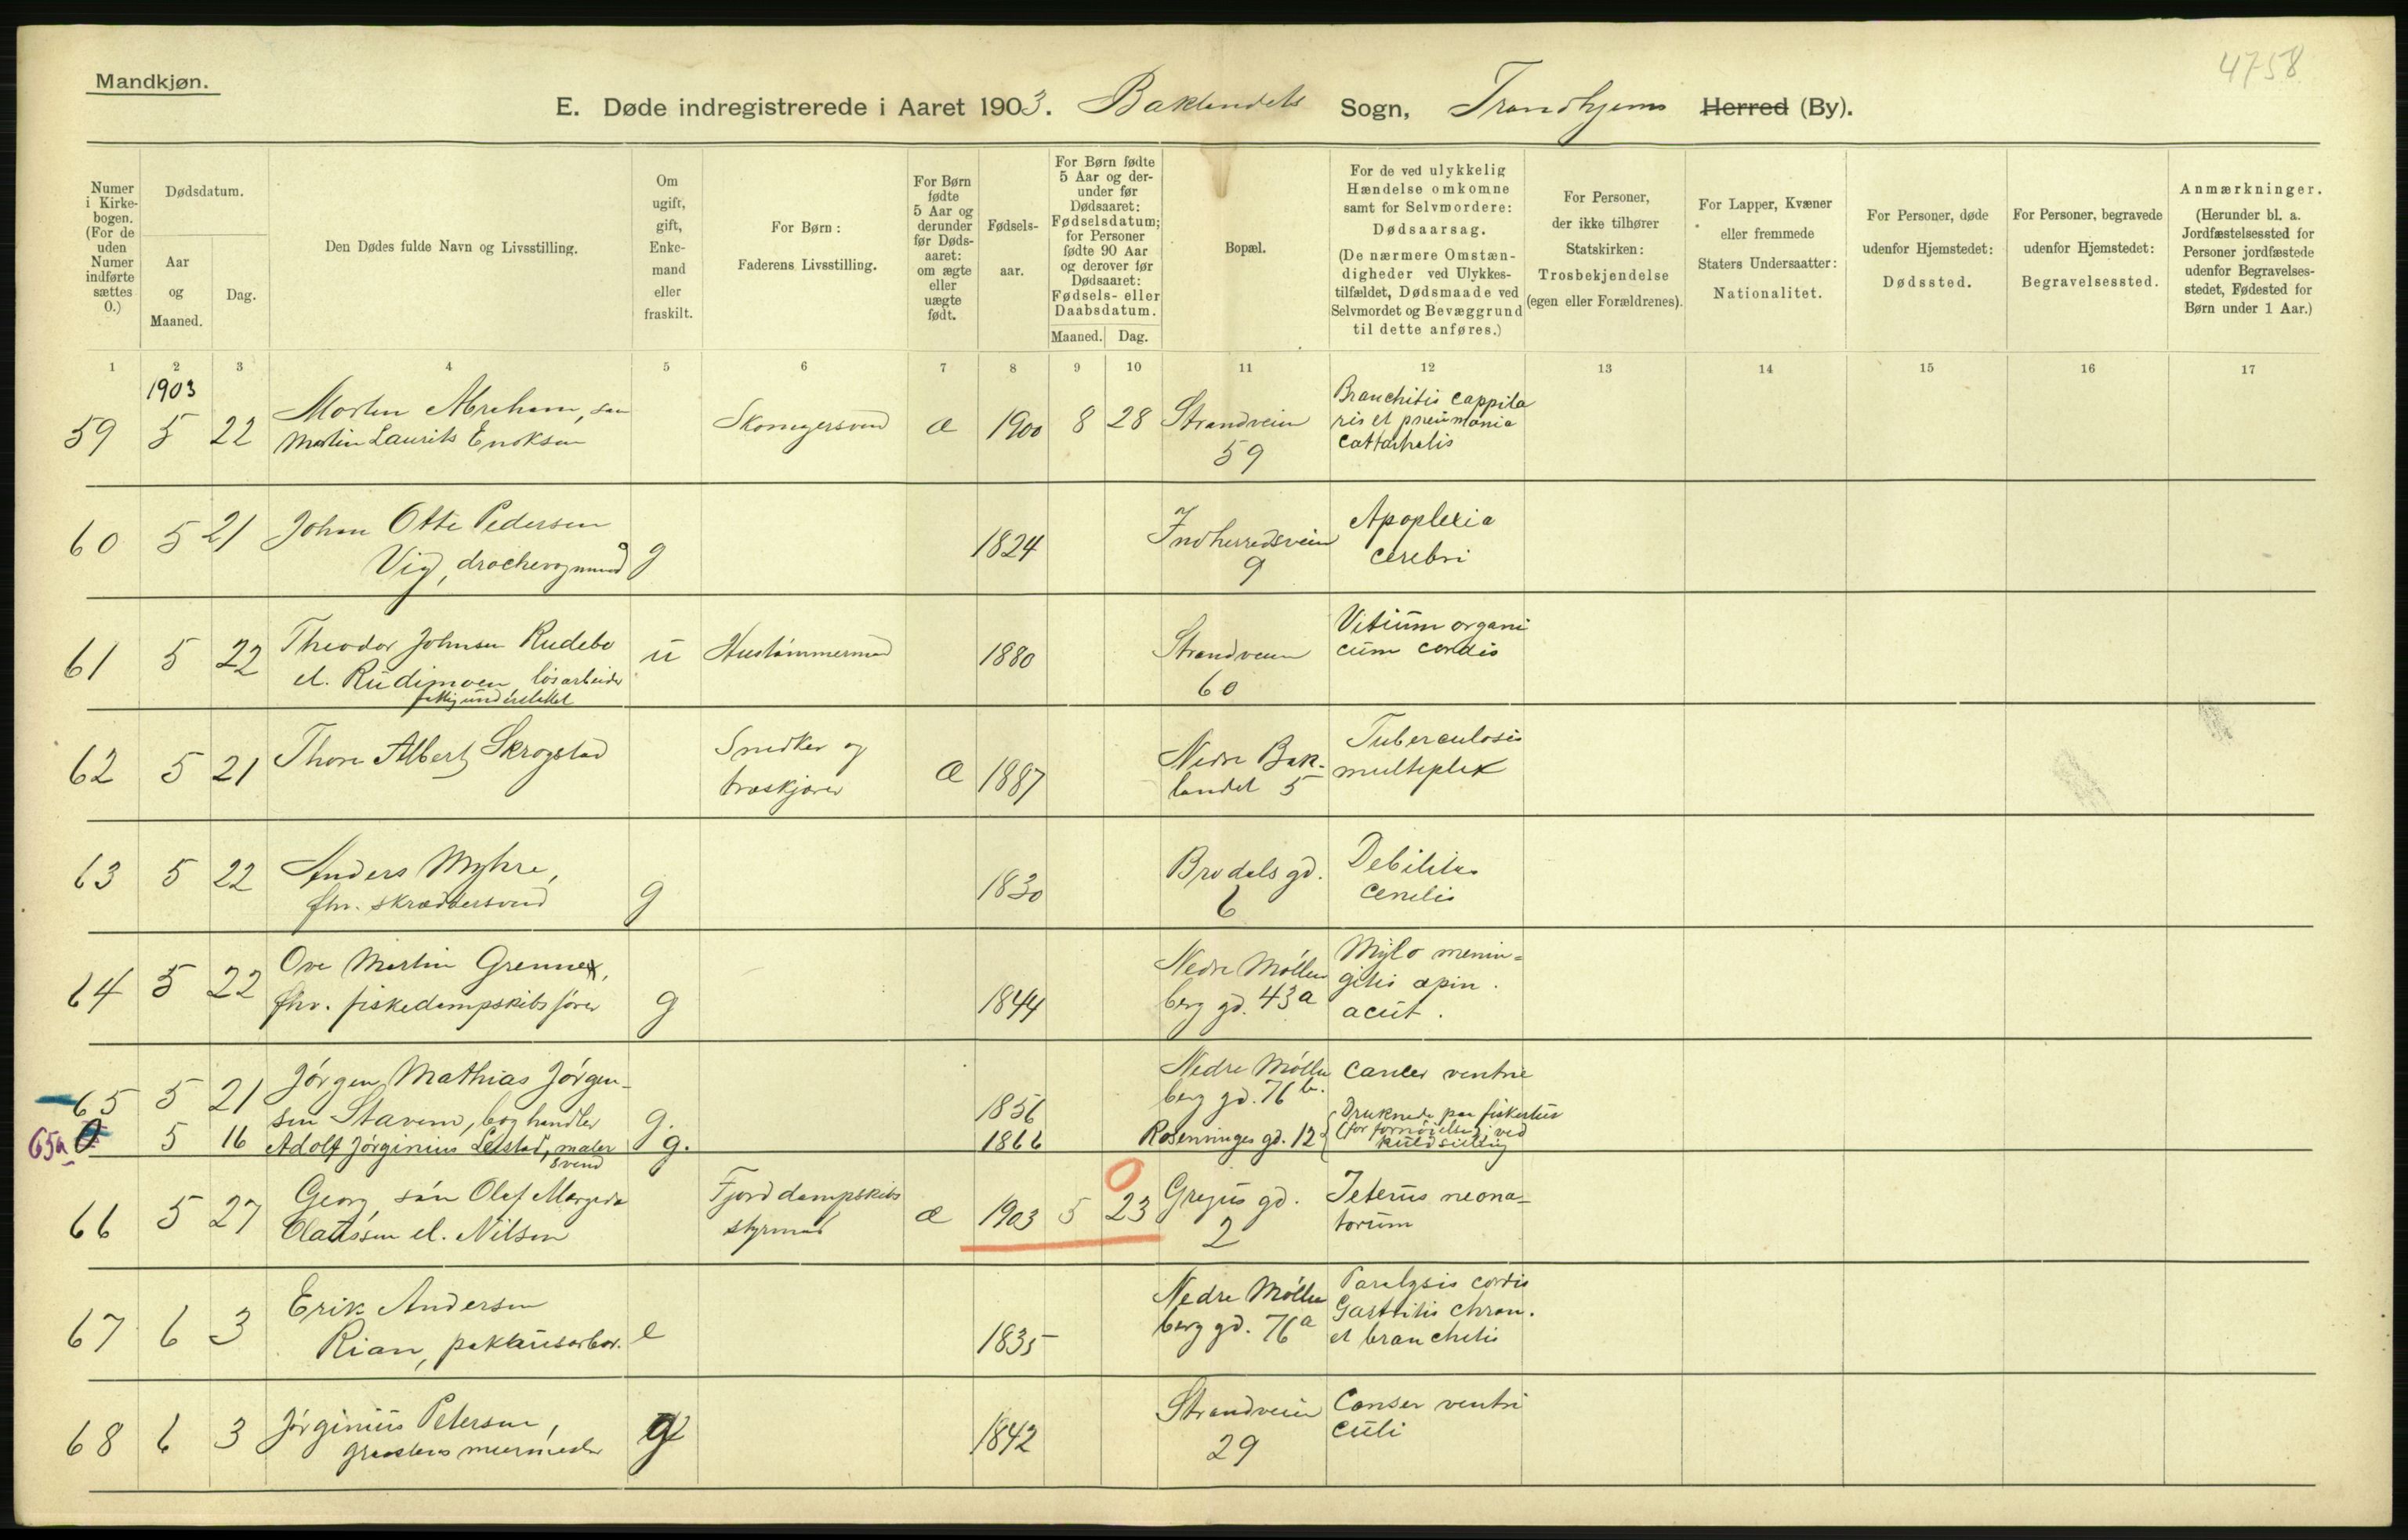 4758
Mandkjøn.
E. Døde indregistrerede i Aaret 1903. Baklandets Sogn, Trondhjems Herred (By).
Numer i Kirkebogen. (For de uden Numer indførte sættes 0.)
Dødsdatum.
Aar og Maaned.
Dag.
Den Dødes fulde Navn og Livsstilling.
Om ugift, gift, Enkemand eller fraskilt.
For Børn:
Faderens Livsstilling.
For Børn fødte 5 Aar og derunder før Dødsaaret: om ægte eller uægte født.
Fødselsaar.
For Børn fødte 5 Aar og derunder før Dødsaaret: Fødselsdatum; for Personer fødte 90 Aar og derover før Dødsaaret: Fødsels- eller Daabsdatum.
Maaned. Dag.
Bopæl.
For de ved ulykkelig Hændelse omkomne samt for Selvmordere: Dødsaarsag.
(De nærmere Omstændigheder ved Ulykkestilfældet, Dødsmaade ved Selvmordet og Bevæggrund til dette anføres.)
For Personer, der ikke tilhører Statskirken: Trosbekjendelse (egen eller Forældrenes).
For Lapper, Kvæner eller fremmede Staters Undersaatter: Nationalitet.
For Personer, døde udenfor Hjemstedet: Dødssted.
For Personer, begravede udenfor Hjemstedet: Begravelsessted.
Anmærkninger.
(Herunder bl. a. Jordfæstelsessted for Personer jordfæstede udenfor Begravelsesstedet, Fødested for Børn under 1 Aar.)
1 2 3 4 5 6 7 8 9 10 11 12 13 14 15 16 17
1903
59 5 22 Morten Abraham, søn
Martin Laurits Enoksen
Skomagersvend æ 1900 8 28 Strandveien
59
Branchitis cappila
ris et pneumonia
cattarhalis
60 5 21 Johan Otti Pedersen
Vig, drochevognmand g 1824 Indherredsveien
9
Apoplexia
cerebri
61 5 22 Theodor Johnsen Rudebo
el. Rudimoen løsarbeider
fattigunderstøttet
u Hustømmermand 1880 Strandveien
60
Vitium organi
cum cordis
62 5 21 Thore Albert Skrogstad
Snedker og
træskjærer
æ 1887 Nedre Bak-
landet 5
Tuberculosis
multeplex
63 5 22 Anders Myhre,
fhv. skræddersvend g 1830 Brodals gd.
6
Debilitas
cenelis
64 5 22 Ove Martin Grenne,
fhv. fiskedampskibsfører g 1844 Nedre Møllen
berg gd. 43a
Mylo menin=
gitis spin.
acut.
65 5 21 Jørgen Mathias Jørgen-
sen Stavem, boghandler g. 1856 Nedre Møllen
berg gd. 76 b.
Cancer ventrie
65a 0 5 16 Adolf Jørginius Leistad, maler
svend
g. 1866 Rosenvinges gd. 12
Druknede paa fisketur
(for fornøielse) ved
kuldseiling
66 5 27 Georg, søn Olaf Margido
Olaussen el. Nilsen
Fjorddampskibs
styrmand
æ 1903 5 23 Gregus gd.
2
Icterus neona-
torum
0
67 6 3 Erik Andersen
Rian, pakhusarbor. e 1835 Nedre Møllen
berg gd. 76a
Paralysis cordis
Gastritis chron.
et branchitis
68 6 3 Jørginius Petersen,
graastens murmester g 1842 Strandveien
29
Canser ventri
culi